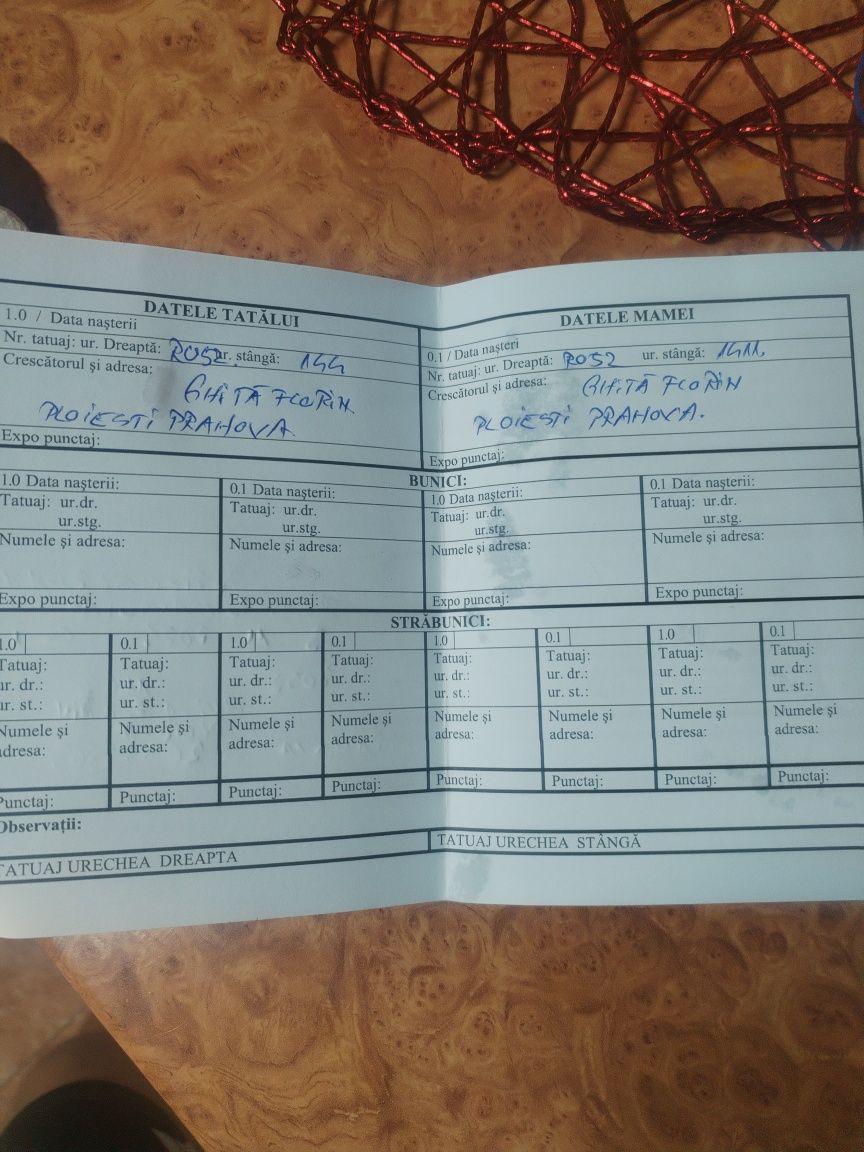 DATELE TATĂLUI
1.0 / Data nașterii
Nr. tatuaj: ur. Dreaptă: RO52 ur. stângă: 144
Crescătorul și adresa:
GHITĂ FLORIN
PLOIESTI PRAHOVA.
Expo punctaj:
DATELE MAMEI
0.1 / Data nașteri
Nr. tatuaj: ur. Dreaptă: RO52 ur. stângă: 1411
Crescătorul și adresa:
GHITĂ FLORIN
PLOIESTI PRAHOVA.
Expo punctaj:
BUNICI:
1.0 Data nașterii:
Tatuaj: ur.dr.
ur.stg.
Numele și adresa:
Expo punctaj:
0.1 Data nașterii:
Tatuaj: ur.dr.
ur.stg.
Numele și adresa:
Expo punctaj:
1.0 Data nașterii:
Tatuaj: ur.dr.
ur.stg.
Numele și adresa:
Expo punctaj:
0.1 Data nașterii:
Tatuaj: ur.dr.
ur.stg.
Numele și adresa:
Expo punctaj:
STRĂBUNICI:
1.0
Tatuaj:
ur. dr.:
ur. st.:
Numele și
adresa:
Punctaj:
0.1
Tatuaj:
ur. dr.:
ur. st.:
Numele și
adresa:
Punctaj:
1.0
Tatuaj:
ur. dr.:
ur. st.:
Numele și
adresa:
Punctaj:
0.1
Tatuaj:
ur. dr.:
ur. st.:
Numele și
adresa:
Punctaj:
1.0
Tatuaj:
ur. dr.:
ur. st.:
Numele și
adresa:
Punctaj:
0.1
Tatuaj:
ur. dr.:
ur. st.:
Numele și
adresa:
Punctaj:
1.0
Tatuaj:
ur. dr.:
ur. st.:
Numele și
adresa:
Punctaj:
0.1
Tatuaj:
ur. dr.:
ur. st.:
Numele și
adresa:
Punctaj:
Observații:
TATUAJ URECHEA DREAPTA
TATUAJ URECHEA STÂNGĂ